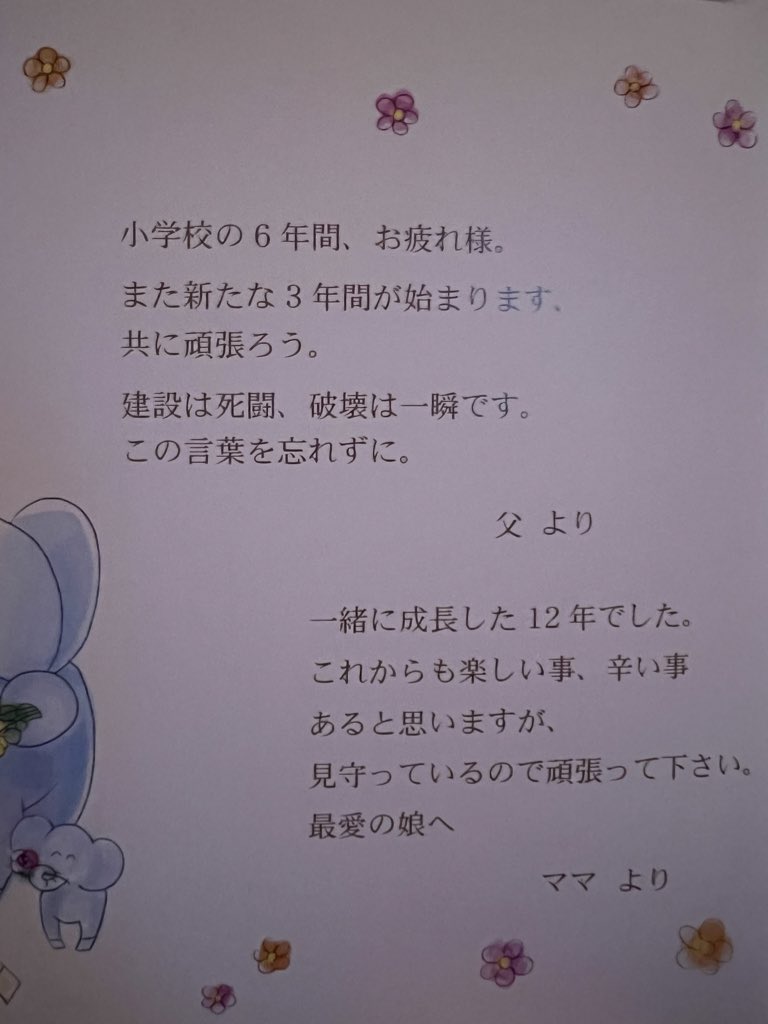 小学校の6年間、お疲れ様。
また新たな3年間が始まります、
共に頑張ろう。
建設は死闘、破壊は一瞬です。
この言葉を忘れずに。
父 より
一緒に成長した12年でした。
これからも楽しい事、辛い事
あると思いますが、
見守っているので頑張って下さい。
最愛の娘へ
ママ より